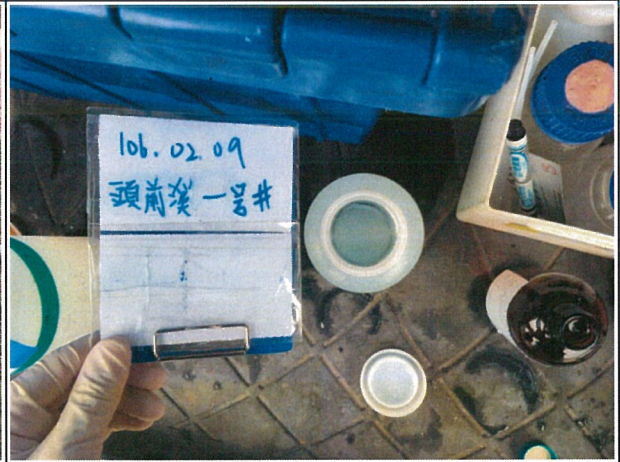 106.02.09
頭前溪一号井